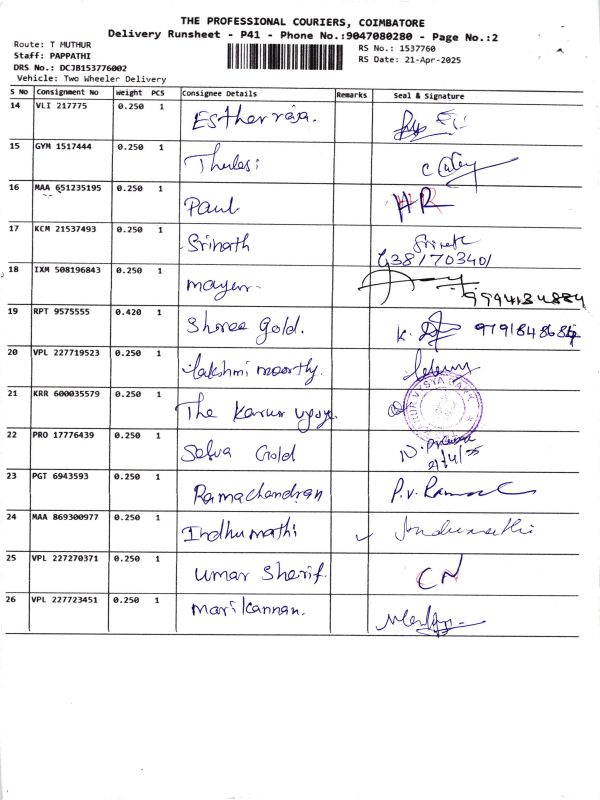 THE PROFESSIONAL COURIERS, COIMBATORE
Delivery Runsheet - P41 - Phone No.:9047080280 - Page No.:2
Route: T MUTHUR
RS No.: 1537760
Staff: PAPPATHI
RS Date: 21-Apr-2025
DRS No.: DCJB153776002
Vehicle: Two Wheeler Delivery
S No Consignment No Weight PCS Consignee Details Remarks Seal & Signature
14 VLI 217775 0.250 1 Esther raja.
15 GYM 1517444 0.250 1 Thulasi
16 MAA 651235195 0.250 1 Paul HR
17 KCM 21537493 0.250 1 Srinath
18 IXM 508196843 0.250 1 9994134884
19 RPT 9575555 0.420 1 Shree Gold.
20 VPL 227719523 0.250 1 Lakshmi moorthy.
21 KRR 600035579 0.250 1 The Karur vysya.
22 PRO 17776439 0.250 1 Selva Gold
21/4/25
23 PGT 6943593 0.250 1 Ramachandran P.V.
24 MAA 869300977 0.250 1 Indhumathi Indumathi
25 VPL 227270371 0.250 1 umar Sherif. CN
26 VPL 227723451 0.250 1 marikannan.